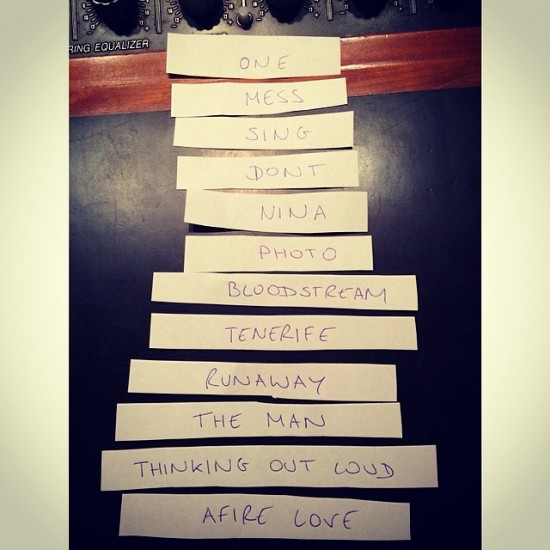 RING EQUALIZER
ONE
MESS
SING
DONT
NINA
PHOTO
BLOODSTREAM
TENERIFE
RUNAWAY
THE MAN
THINKING OUT LOUD
AFIRE LOVE